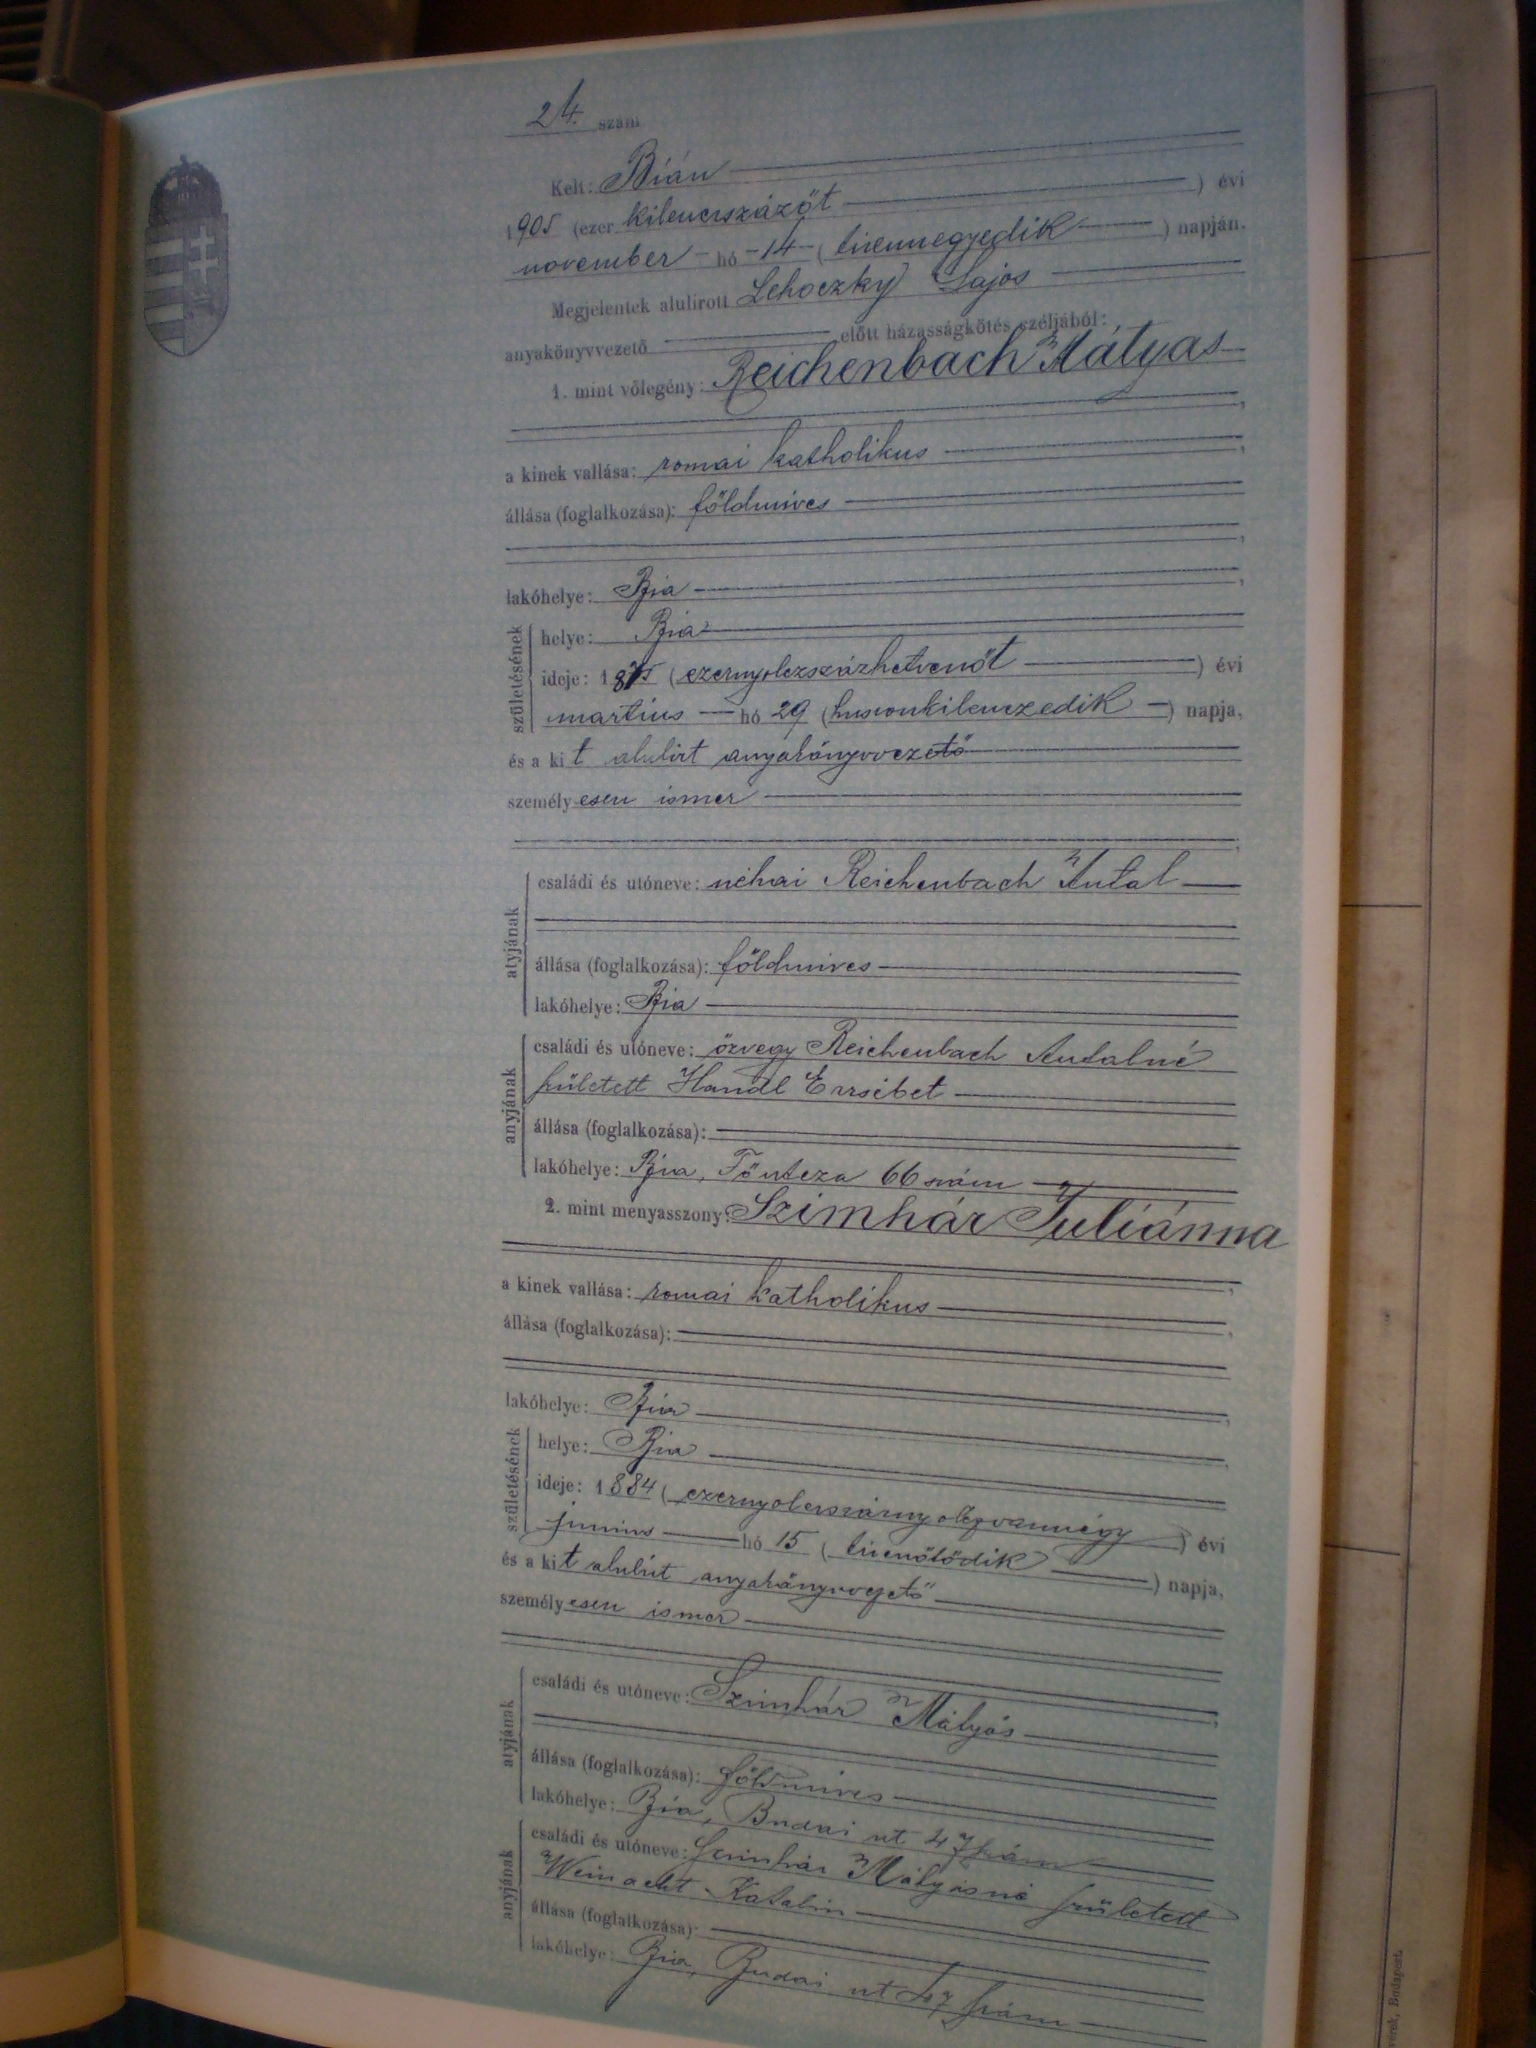 24. szám
Kelt: Bián
1905 (ezer kilencszázöt ) évi
november hó 14 ( tizennegyedik ) napján.
Megjelentek alulírott Lehoczky Lajos
anyakönyvvezető előtt házasságkötés czéljából:
1. mint vőlegény: Reichenbach Mátyás
a kinek vallása: romai katholikus
állása (foglalkozása): földmives
lakóhelye: Bia
születésének
helye: Bia
ideje: 1875 (ezernyolczszázhetvenöt ) évi
martius hó 29 (huszonkilenczedik ) napja,
és a kit alulirt anyakönyvvezető
személyesen ismer
atyjának
családi és utóneve: néhai Reichenbach Antal
állása (foglalkozása): földmives
lakóhelye: Bia
anyjának
családi és utóneve: özvegy Reichenbach Antalné
született Handl Erzsébet
állása (foglalkozása):
lakóhelye: Bia, Főutcza 66 szám
2. mint menyasszony: Szimhár Juliánna
a kinek vallása: romai katholikus
állása (foglalkozása):
lakóhelye: Bia
születésének
helye: Bia
ideje: 1884 ( ezernyolcszáznyolczvannégy ) évi
junius hó 15 ( tizenötödik ) napja,
és a kit alulirt anyakönyvvezető
személyesen ismer
atyjának
családi és utóneve: Szimhár Mátyás
állása (foglalkozása): földmives
lakóhelye: Bia, Budai ut 47 szám
anyjának
családi és utóneve: Szimhár Mátyásné született
Weinacht Katalin
állása (foglalkozása):
lakóhelye: Bia, Budai ut 47 szám
Budapest.